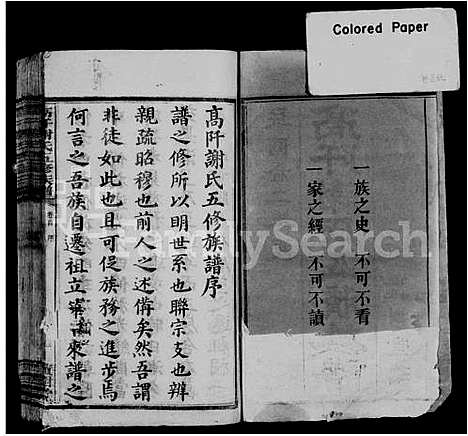 Colored Paper
一族之史 不可不看
一家之經 不可不讀
高阡謝氏五修族譜序
譜之修所以明世系也聯宗支也辨
親疏昭穆也前人之述備矣然吾謂
非徒如此也且可促族務之進步焉
何言之吾族自遷祖立寧以來譜之
FamilySearch